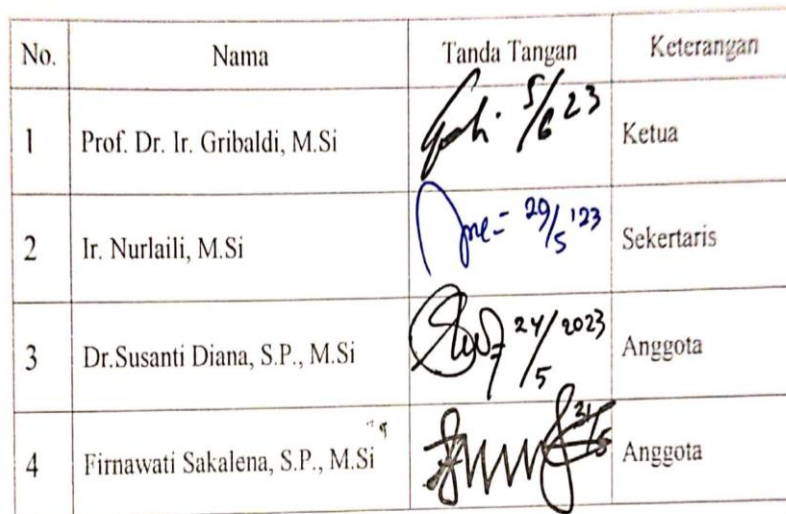 No. Nama Tanda Tangan Keterangan
1 Prof. Dr. Ir. Gribaldi, M.Si 5/6 23 Ketua
2 Ir. Nurlaili, M.Si 29/5 '23 Sekertaris
3 Dr.Susanti Diana, S.P., M.Si 24/5 2023 Anggota
4 Firnawati Sakalena, S.P., M.Si Anggota